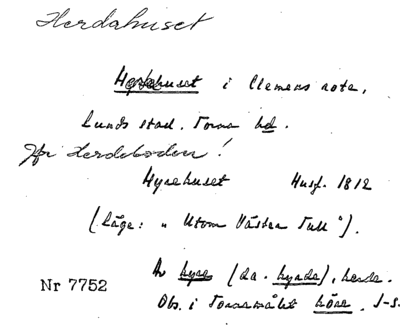 Herdahuset
Herdehuset i Clemens rote,
Lunds stad. Torna hd.
Jfr Herdeboden!
Hyrehuset Husf. 1812
(Läge: "Utom Västra Tull").
Av hyre (da. hyrde), herde.
Nr 7752
Obs. i Tornamålet höre. J-S.